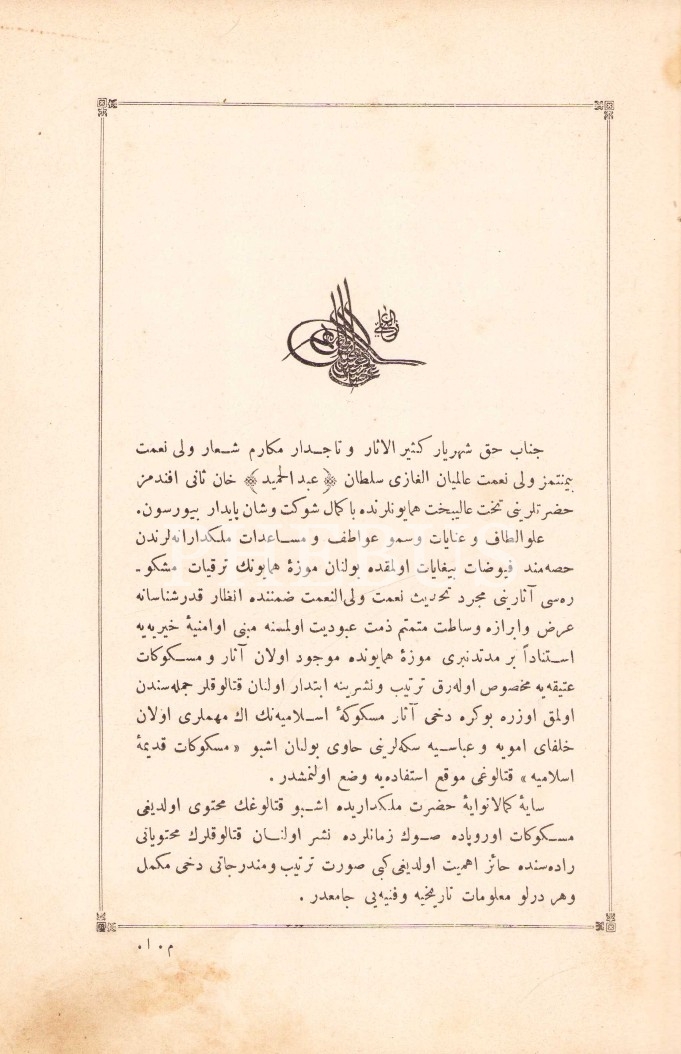 جناب حق شهریار كثیر الاثار و تاجدار مكارم شعار ولی نعمت
بیمنتمز ولی نعمت عالمیان الغازی سلطان ﴿ عبد الحمید ﴾ خان ثانی افندمز
حضرتلرینی تخت عالیبخت همایونلرنده با كمال شوكت وشان پایدار بیورسون.
علوالطاف و عنایات وسمو عواطف و مساعدات ملكدارانه‌لرندن
حصه‌مند فیوضات بیغایات اولمقده بولنان موزهٔ همایونك ترقیات مشكو-
ره‌سی آثارینی مجرد تحدیث نعمت ولی‌النعمت ضمننده انظار قدرشناسانه
عرض وابرازه وساطت متمتم ذمت عبودیت اولمسنه مبنی اوامنیهٔ خیریه‌یه
استناداً بر مدتدنبری موزهٔ همایونده موجود اولان آثار و مسكوكات
عتیقه‌یه مخصوص اوله‌رق ترتیب ونشرینه ابتدار اولنان قتالوقلر جمله‌سندن
اولمق اوزره بوكره دخی آثار مسكوكهٔ اسلامیه‌نك اك مهملری اولان
خلفای امویه و عباسیه سكه‌لرینی حاوی بولنان اشبو « مسكوكات قدیمهٔ
اسلامیه » قتالوغی موقع استفاده‌یه وضع اولنمشدر .
سایهٔ كمالانوایهٔ حضرت ملكداریده اشبو قتالوغك محتوی اولدیغی
مسكوكات اوروپاده صوك زمانلرده نشر اولنان قتالوقلرك محتویاتی
راده‌سنده حائز اهمیت اولدیغی كبی صورت ترتیب ومندرجاتی دخی مكمل
وهر درلو معلومات تاریخیه وفنیه‌یی جامعدر .
م . ا .